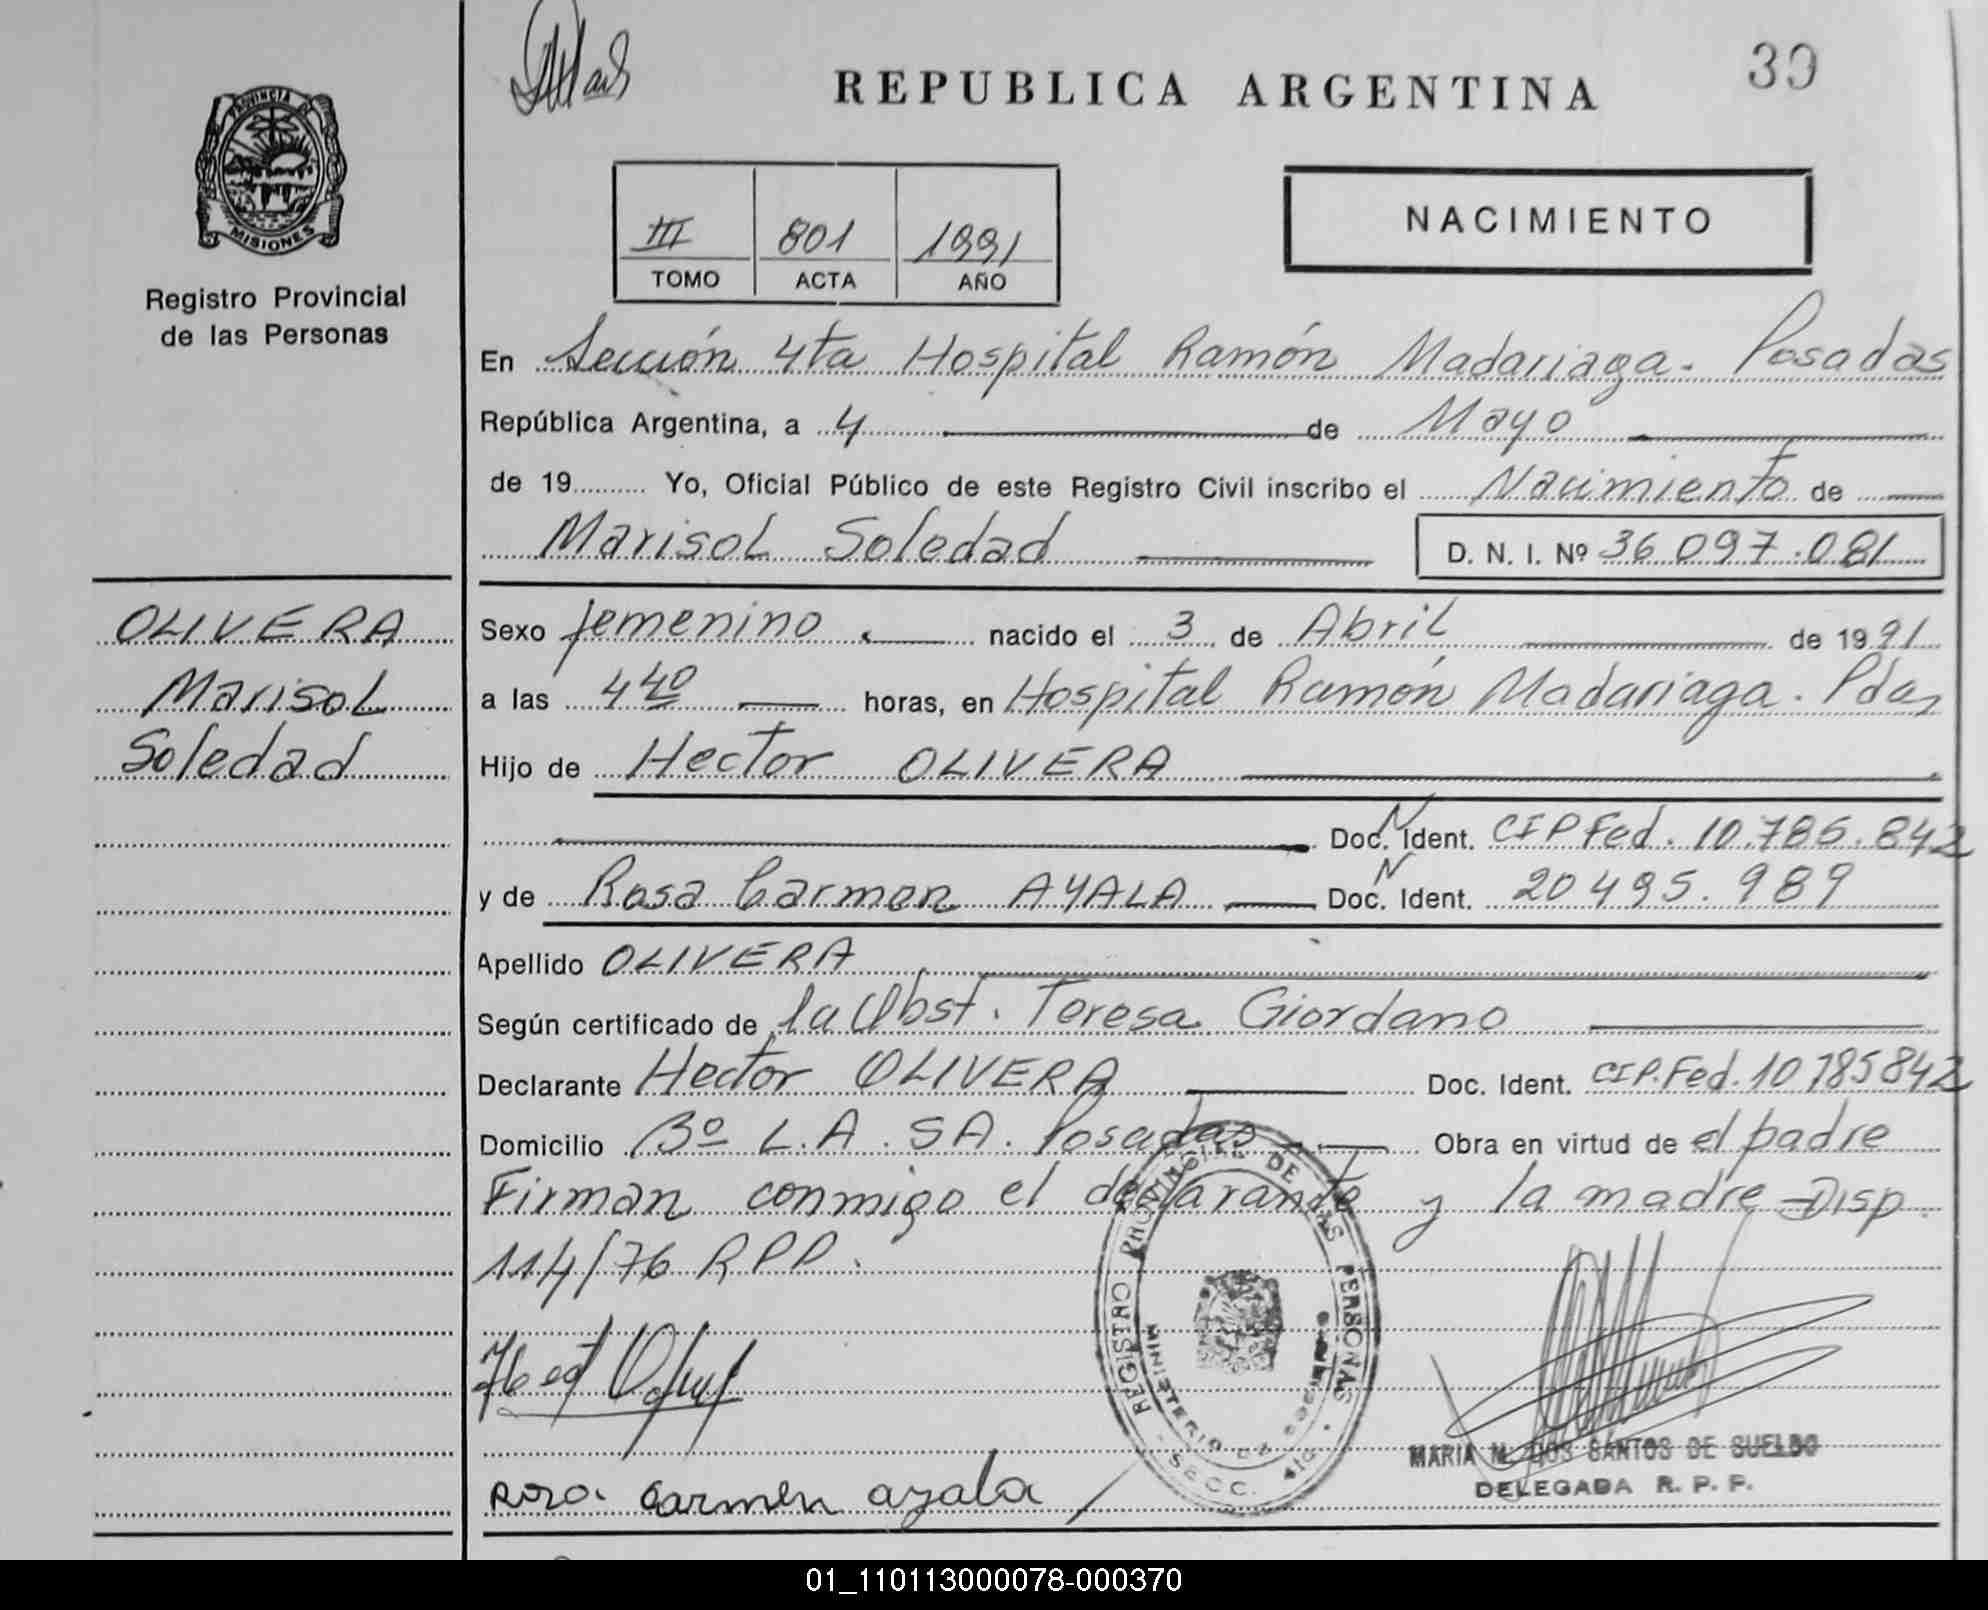 39
REPUBLICA ARGENTINA
PROVINCIA DE
MISIONES
Registro Provincial
de las Personas
III 801 1991
TOMO ACTA AÑO
NACIMIENTO
En Sección 4ta Hospital Ramón Madariaga. Posadas
República Argentina, a 4 de Mayo
de 19 Yo, Oficial Público de este Registro Civil inscribo el Nacimiento de
Marisol Soledad D. N. I. Nº 36.097.081
OLIVERA
Marisol
Soledad
Sexo femenino nacido el 3 de Abril de 1991
a las 4 40 horas, en Hospital Ramón Madariaga. Pdas
Hijo de Hector OLIVERA
Doc. N Ident. CIPFed. 10.785.842
y de Rosa Carmen AYALA Doc. N Ident. 20495.989
Apellido OLIVERA
Según certificado de la Obst. Teresa Giordano
Declarante Hector OLIVERA Doc. Ident. CIP.Fed. 10785842
Domicilio Bº L.A. SA. Posadas Obra en virtud de el padre
Firman conmigo el declarante y la madre Disp.
114/76 RPP.
REGISTRO PROVINCIAL DE LAS PERSONAS
MINISTERIO DE GOBIERNO
SECC. 4ta
Rosa Carmen ayala
MARIA M. DOS SANTOS DE SUELDO
DELEGADA R. P. P.
01_110113000078-000370